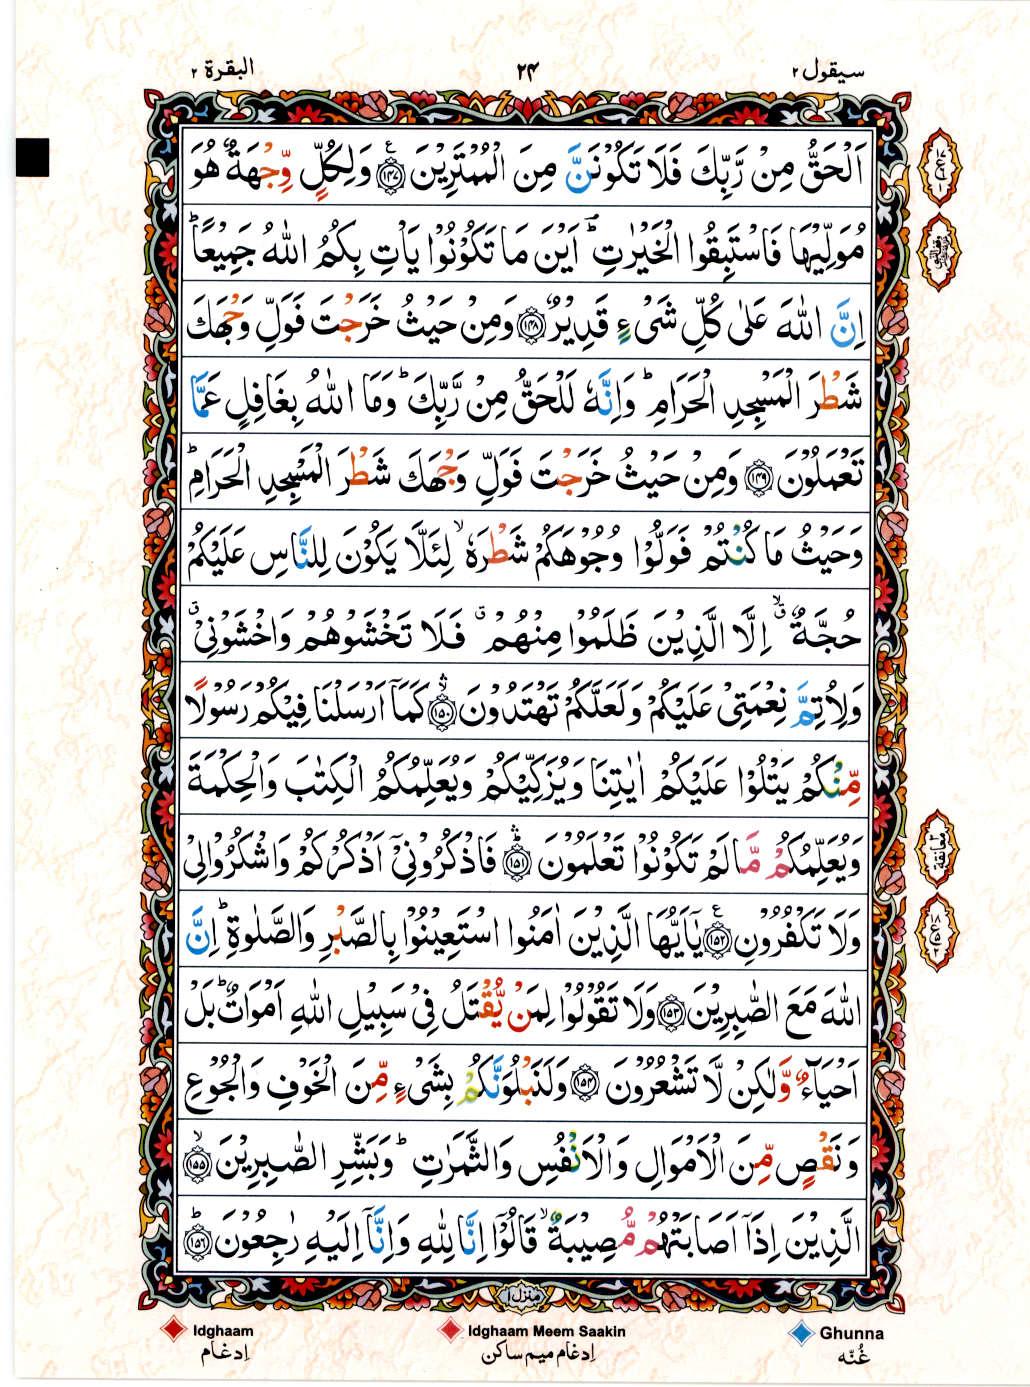 سيقول ٢
٢٤
البقرة ٢
اَلْحَقُّ مِنْ رَّبِّكَ فَلَا تَكُوْنَنَّ مِنَ الْمُمْتَرِيْنَ ﴿۱۴۷﴾ وَلِكُلٍّ وِّجْهَةٌ هُوَ
مُوَلِّيْهَا فَاسْتَبِقُوا الْخَيْرٰتِ ؕ اَيْنَ مَا تَكُوْنُوْا يَاْتِ بِكُمُ اللّٰهُ جَمِيْعًا ؕ
اِنَّ اللّٰهَ عَلٰى كُلِّ شَىْءٍ قَدِيْرٌ ﴿۱۴۸﴾ وَمِنْ حَيْثُ خَرَجْتَ فَوَلِّ وَجْهَكَ
شَطْرَ الْمَسْجِدِ الْحَرَامِ ؕ وَاِنَّهٗ لَلْحَقُّ مِنْ رَّبِّكَ ؕ وَمَا اللّٰهُ بِغَافِلٍ عَمَّا
تَعْمَلُوْنَ ﴿۱۴۹﴾ وَمِنْ حَيْثُ خَرَجْتَ فَوَلِّ وَجْهَكَ شَطْرَ الْمَسْجِدِ الْحَرَامِ ؕ
وَحَيْثُ مَا كُنْتُمْ فَوَلُّوْا وُجُوْهَكُمْ شَطْرَهٗ ۙ لِئَلَّا يَكُوْنَ لِلنَّاسِ عَلَيْكُمْ
حُجَّةٌ ۙۗ اِلَّا الَّذِيْنَ ظَلَمُوْا مِنْهُمْ ۗ فَلَا تَخْشَوْهُمْ وَاخْشَوْنِيْ ۗ
وَلِاُتِمَّ نِعْمَتِيْ عَلَيْكُمْ وَلَعَلَّكُمْ تَهْتَدُوْنَ ﴿۱۵۰﴾ كَمَآ اَرْسَلْنَا فِيْكُمْ رَسُوْلًا
مِّنْكُمْ يَتْلُوْا عَلَيْكُمْ اٰيٰتِنَا وَيُزَكِّيْكُمْ وَيُعَلِّمُكُمُ الْكِتٰبَ وَالْحِكْمَةَ
وَيُعَلِّمُكُمْ مَّا لَمْ تَكُوْنُوْا تَعْلَمُوْنَ ﴿۱۵۱﴾ فَاذْكُرُوْنِيْٓ اَذْكُرْكُمْ وَاشْكُرُوْا لِيْ
وَلَا تَكْفُرُوْنِ ﴿۱۵۲﴾ يٰٓاَيُّهَا الَّذِيْنَ اٰمَنُوا اسْتَعِيْنُوْا بِالصَّبْرِ وَالصَّلٰوةِ ؕ اِنَّ
اللّٰهَ مَعَ الصّٰبِرِيْنَ ﴿۱۵۳﴾ وَلَا تَقُوْلُوْا لِمَنْ يُّقْتَلُ فِيْ سَبِيْلِ اللّٰهِ اَمْوَاتٌ ؕ بَلْ
اَحْيَآءٌ وَّلٰكِنْ لَّا تَشْعُرُوْنَ ﴿۱۵۴﴾ وَلَنَبْلُوَنَّكُمْ بِشَىْءٍ مِّنَ الْخَوْفِ وَالْجُوْعِ
وَنَقْصٍ مِّنَ الْاَمْوَالِ وَالْاَنْفُسِ وَالثَّمَرٰتِ ؕ وَبَشِّرِ الصّٰبِرِيْنَ ﴿۱۵۵﴾
الَّذِيْنَ اِذَآ اَصَابَتْهُمْ مُّصِيْبَةٌ ۙ قَالُوْٓا اِنَّا لِلّٰهِ وَاِنَّآ اِلَيْهِ رٰجِعُوْنَ ﴿۱۵۶﴾
معانقة
منزل ١
Ghunna
غُنّه
Idghaam Meem Saakin
اِدغام میم ساکن
Idghaam
اِدغام